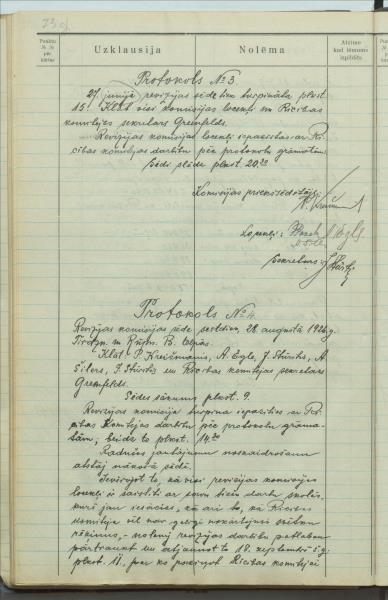 Punktu № № pēc kārtas
Uzklausīja
Nolēma
Atzīme kad lēmums izpildīts
Protokols № 3
27. jūnijā revīzijas sēde tiek turpināta plkst.
15. Klāt visi komisijas locekļi un Rīcības
komitejas sekretars Greenfelds.
Revīzijas komisijas locekļi iepazīstas ar Rī-
cības komitejas darbību pēc protokolu grāmatām
Sēdi slēdz plkst. 20,20
Komisijas priekšsēdētājs:
Locekļi: A Egle
Sekretars: J Stūrītis
Protokols № 4.
Revīzijas komisijas sēde sestdien, 28. augustā 1926 g.
Tirdzn. m Rūpn. B. telpās.
Klāt: P. Kreicmanis, A. Egle, J. Stūrītis, A.
J. Stūrītis un Rīcības komitejas sekretars
Greenfelds.
Sēdes sākums plkst. 9.
Revīzijas komisija turpina iepazīties ar Rī-
cības Komitejas darbību pēc protokolu grāma-
tām; beidz to plkst. 14,20
Radušos jautājumu noskaidrošanu
atstāj nākošā sēdē.
Ievērojot to, ka visi revīzijas komisijas
locekļi ir saistīti ar savu tiešo darbu skolās,
kurš jau iesācies, kā arī to, ka Rīcības
komiteja vēl nav galīgi nokārtojusi
rēķinus, - nolemj revīzijas darbību patlaban
pārtraukt un atjaunot to 18. septembrī š.g.
plkst. 11, par ko paziņot Rīcības komitejai